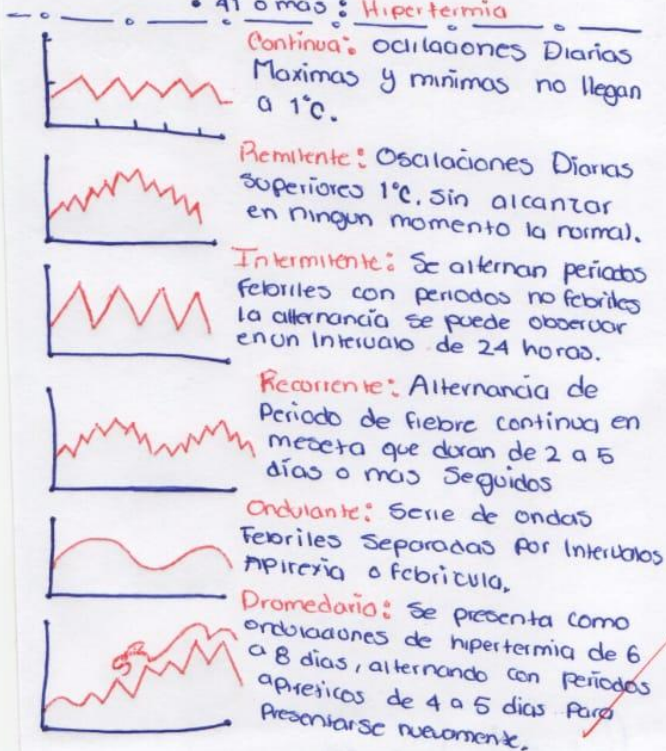 • 41 o mas : Hipertermia
Continua: ocilaciones Diarias
Maximas y minimas no llegan
a 1°C.
Remitente: Oscilaciones Diarias
superiores 1°C. sin alcanzar
en ningun momento la normal.
Intermitente: Se alternan periodos
Febriles con periodos no febriles
la alternancia se puede observar
en un Intervalo de 24 horas.
Recorriente: Alternancia de
Periodo de fiebre continua en
meseta que duran de 2 a 5
días o mas Seguidos
Ondulante: Serie de ondas
Febriles Separadas Por Intervalos
Apirexia o febricula,
Dromedario: Se presenta como
ondulaciones de hipertermia de 6
a 8 dias, alternando con periodos
apireticos de 4 a 5 dias Para
Presentarse nuevamente.